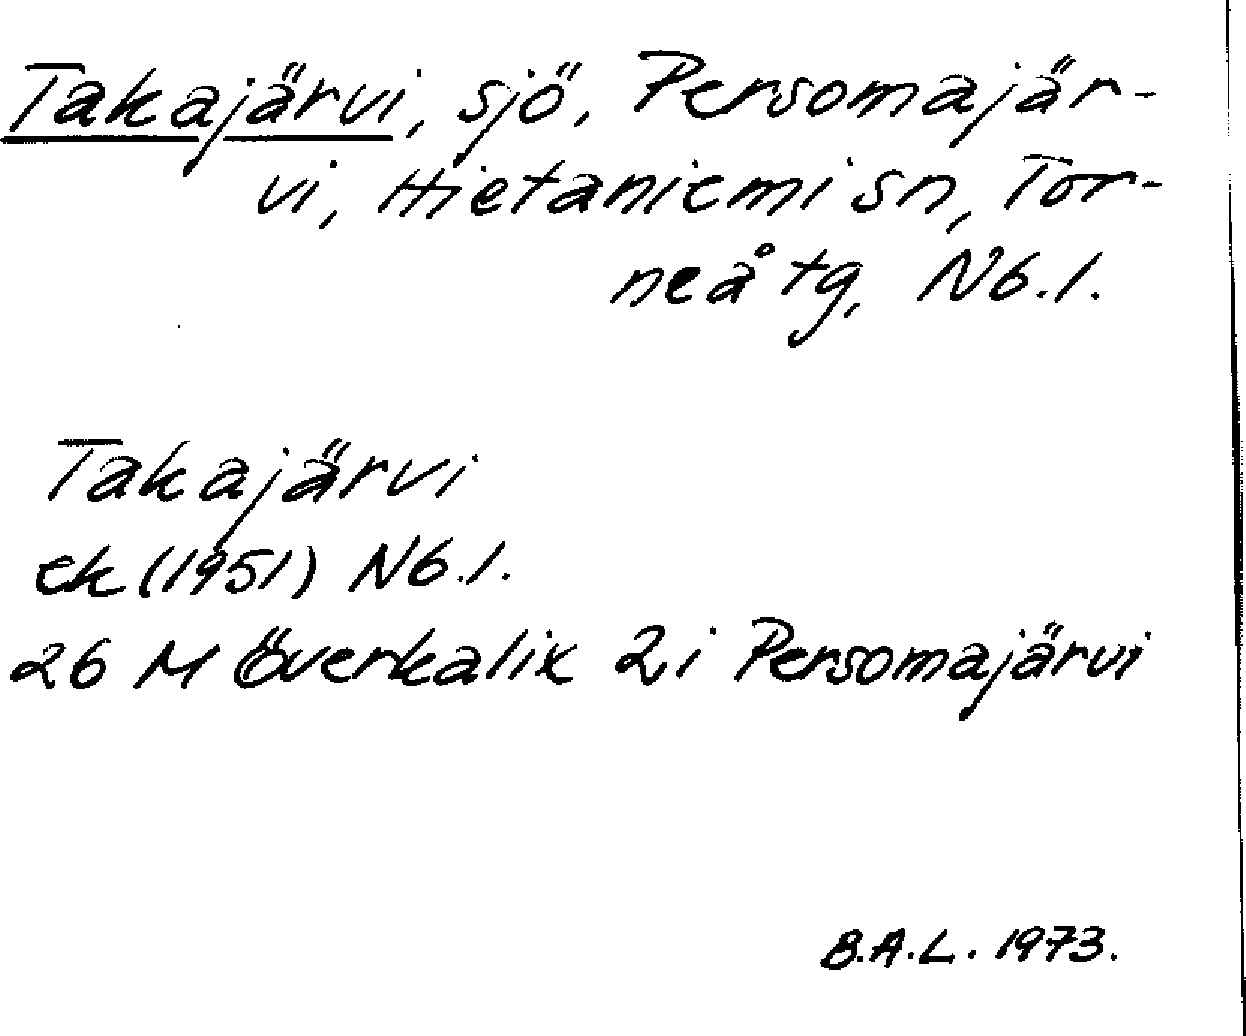 Takajärvi, sjö, Persomajär-
vi, Hietaniemi sn, Tor-
neå tg, Nb.1.
Takajärvi
ek (1951) Nb.1.
26 M Överkalix 2i Persomajärvi
B.A.L. 1973.